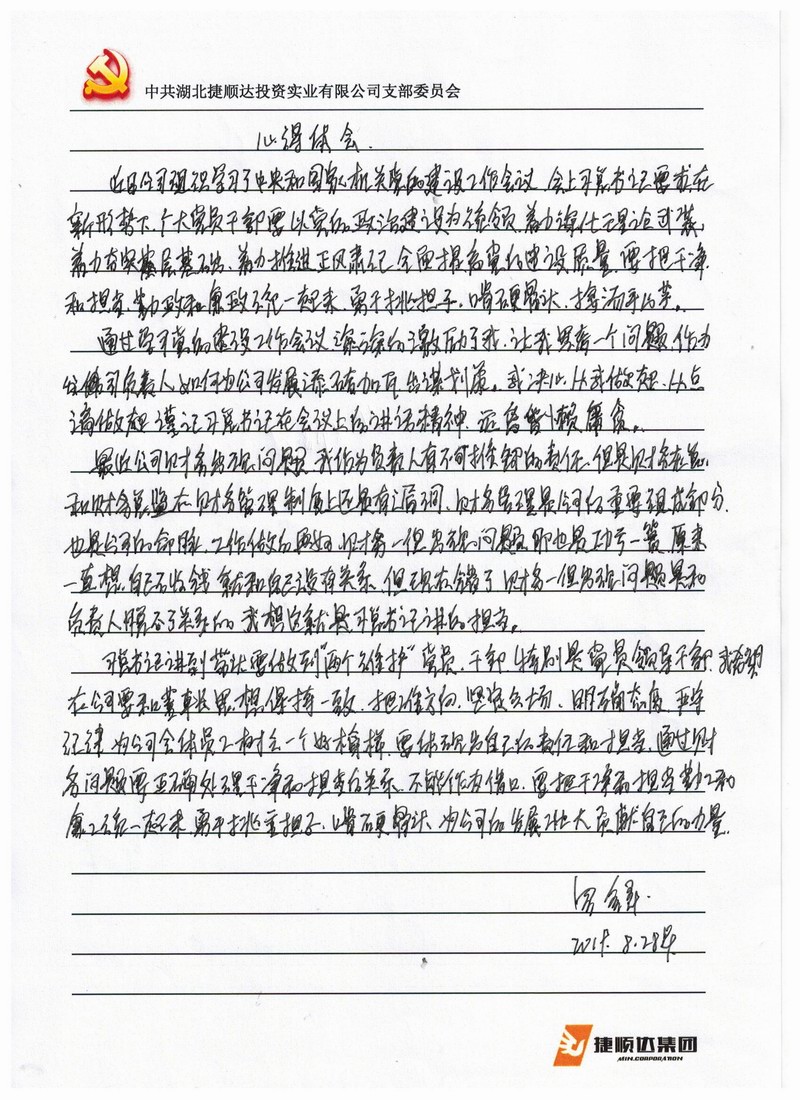 中共湖北捷顺达投资实业有限公司支部委员会
心得体会.
近日公司组织学习了中央和国家机关党的建设工作会议,会上习总书记要求在
新形势下,个大党员干部要以党的政治建设为统领,着力深化理论武装,
着力夯实基层基础,着力推进正风肃纪,全面提高党的建设质量,要把干净
和担当,勤政和廉政统一起来,勇于挑担子,啃硬骨头,接烫手山芋。
通过学习党的建设工作会议,深深的激励了我,让我思考一个问题,作为
负责人,如何为公司发展添砖加瓦,出谋划策。我决心,从我做起,从点
滴做起,谨记习总书记在会议上的讲话精神,
最近公司财务出现问题,我作为负责人有不可推卸的责任,但是财务总
和财务总监在财务管理制度上还是有漏洞,财务管理是公司的重要组成部分,
也是公司的命脉,工作做的再好,财务一但出现问题,那也是功亏一篑,原来
一直想,自己不收钱,就和自己没有关系,但现在错了,财务一但出现问题是和
负责人脱不了关系的,我想这就是习总书记讲的担当。
习总书记讲到带头要做到“两个维护”党员,干部,特别是党员领导干部,我希望
在公司要和董事长思想保持一致,把准方向,坚定立场,明确态度,严守
纪律,为公司全体员工树立一个好榜样,要体现出自己的责任和担当,通过财
务问题要正确处理干净和担当的关系,不能作为借口,要把干净和担当,勤工和
廉工统一起来,勇于挑重担子,啃硬骨头,为公司的发展壮大贡献自己的力量.
8.28
捷顺达集团
MIN.CORPORATION